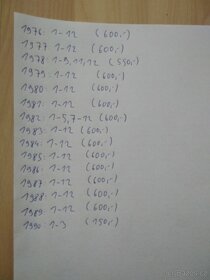 1976: 1-12 (600,-)
1977: 1-12 (600,-)
1978: 1-9,11,12 (550,-)
1979: 1-12 (600,-)
1980: 1-12 (600,-)
1981: 1-12 (600,-)
1982: 1-5,7-12 (600,-)
1983: 1-12 (600,-)
1984: 1-12 (600,-)
1985: 1-12 (600,-)
1986: 1-12 (600,-)
1987: 1-12 (600,-)
1988: 1-12 (600,-)
1989: 1-12 (600,-)
1990: 1-3 (150,-)